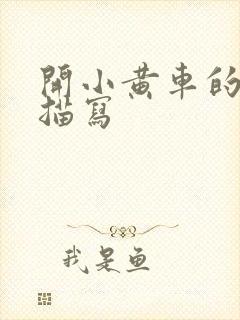 開小黃車的
描寫
我是魚